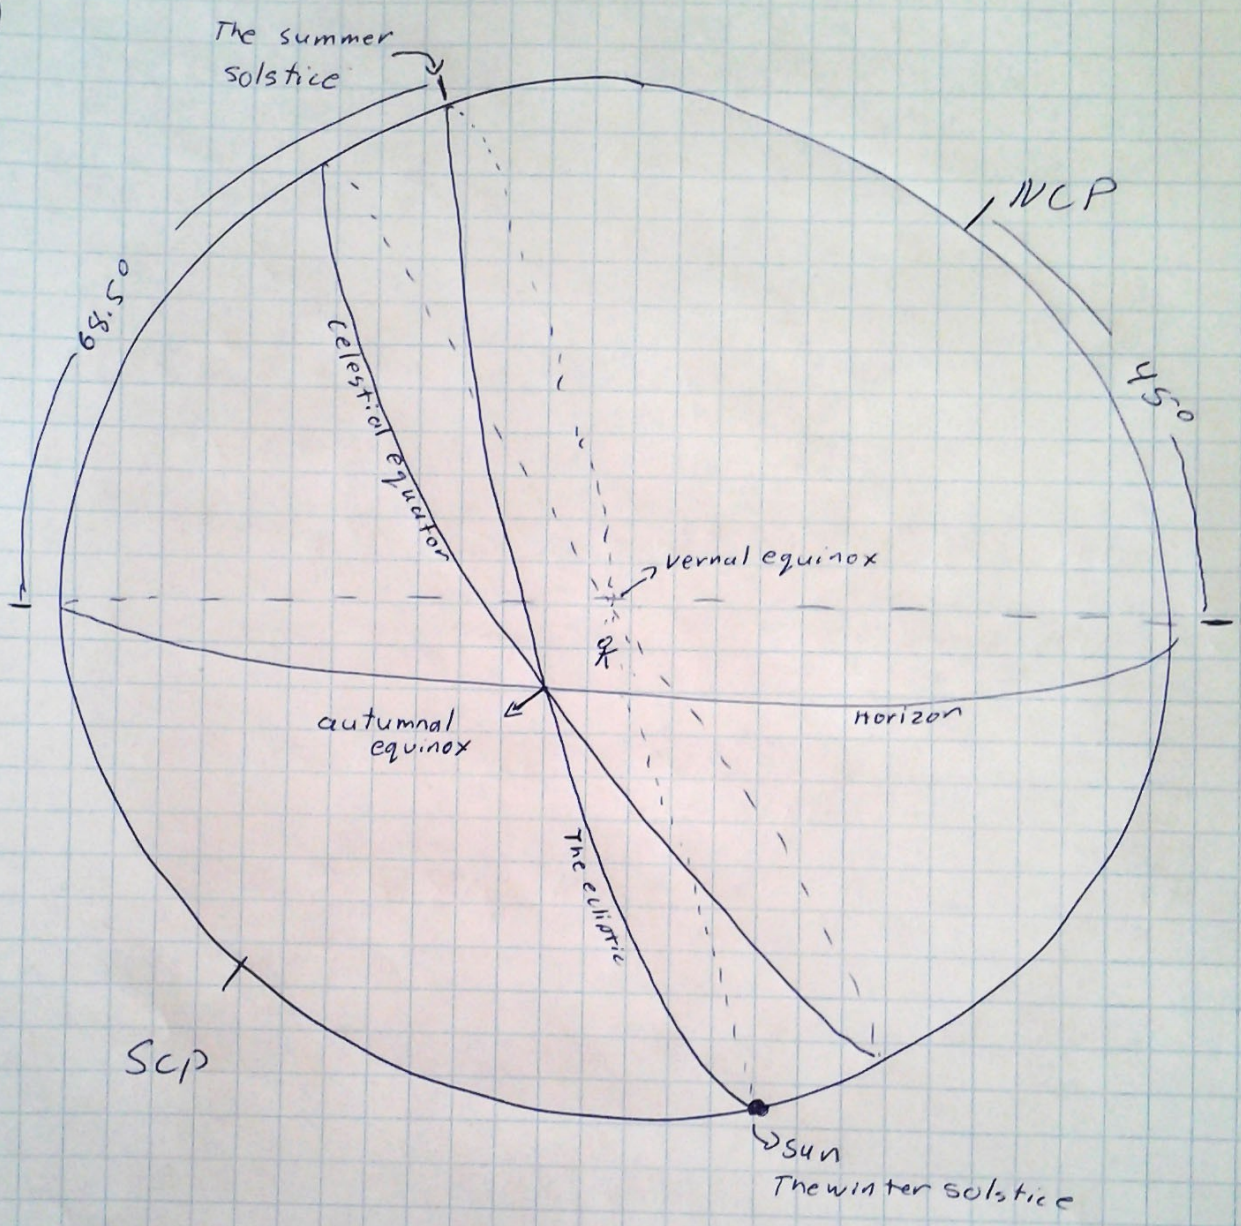 The summer
solstice
NCP
68.5°
45°
celestial equator
vernal equinox
autumnal
equinox
Horizon
The ecliptic
SCP
sun
The winter solstice